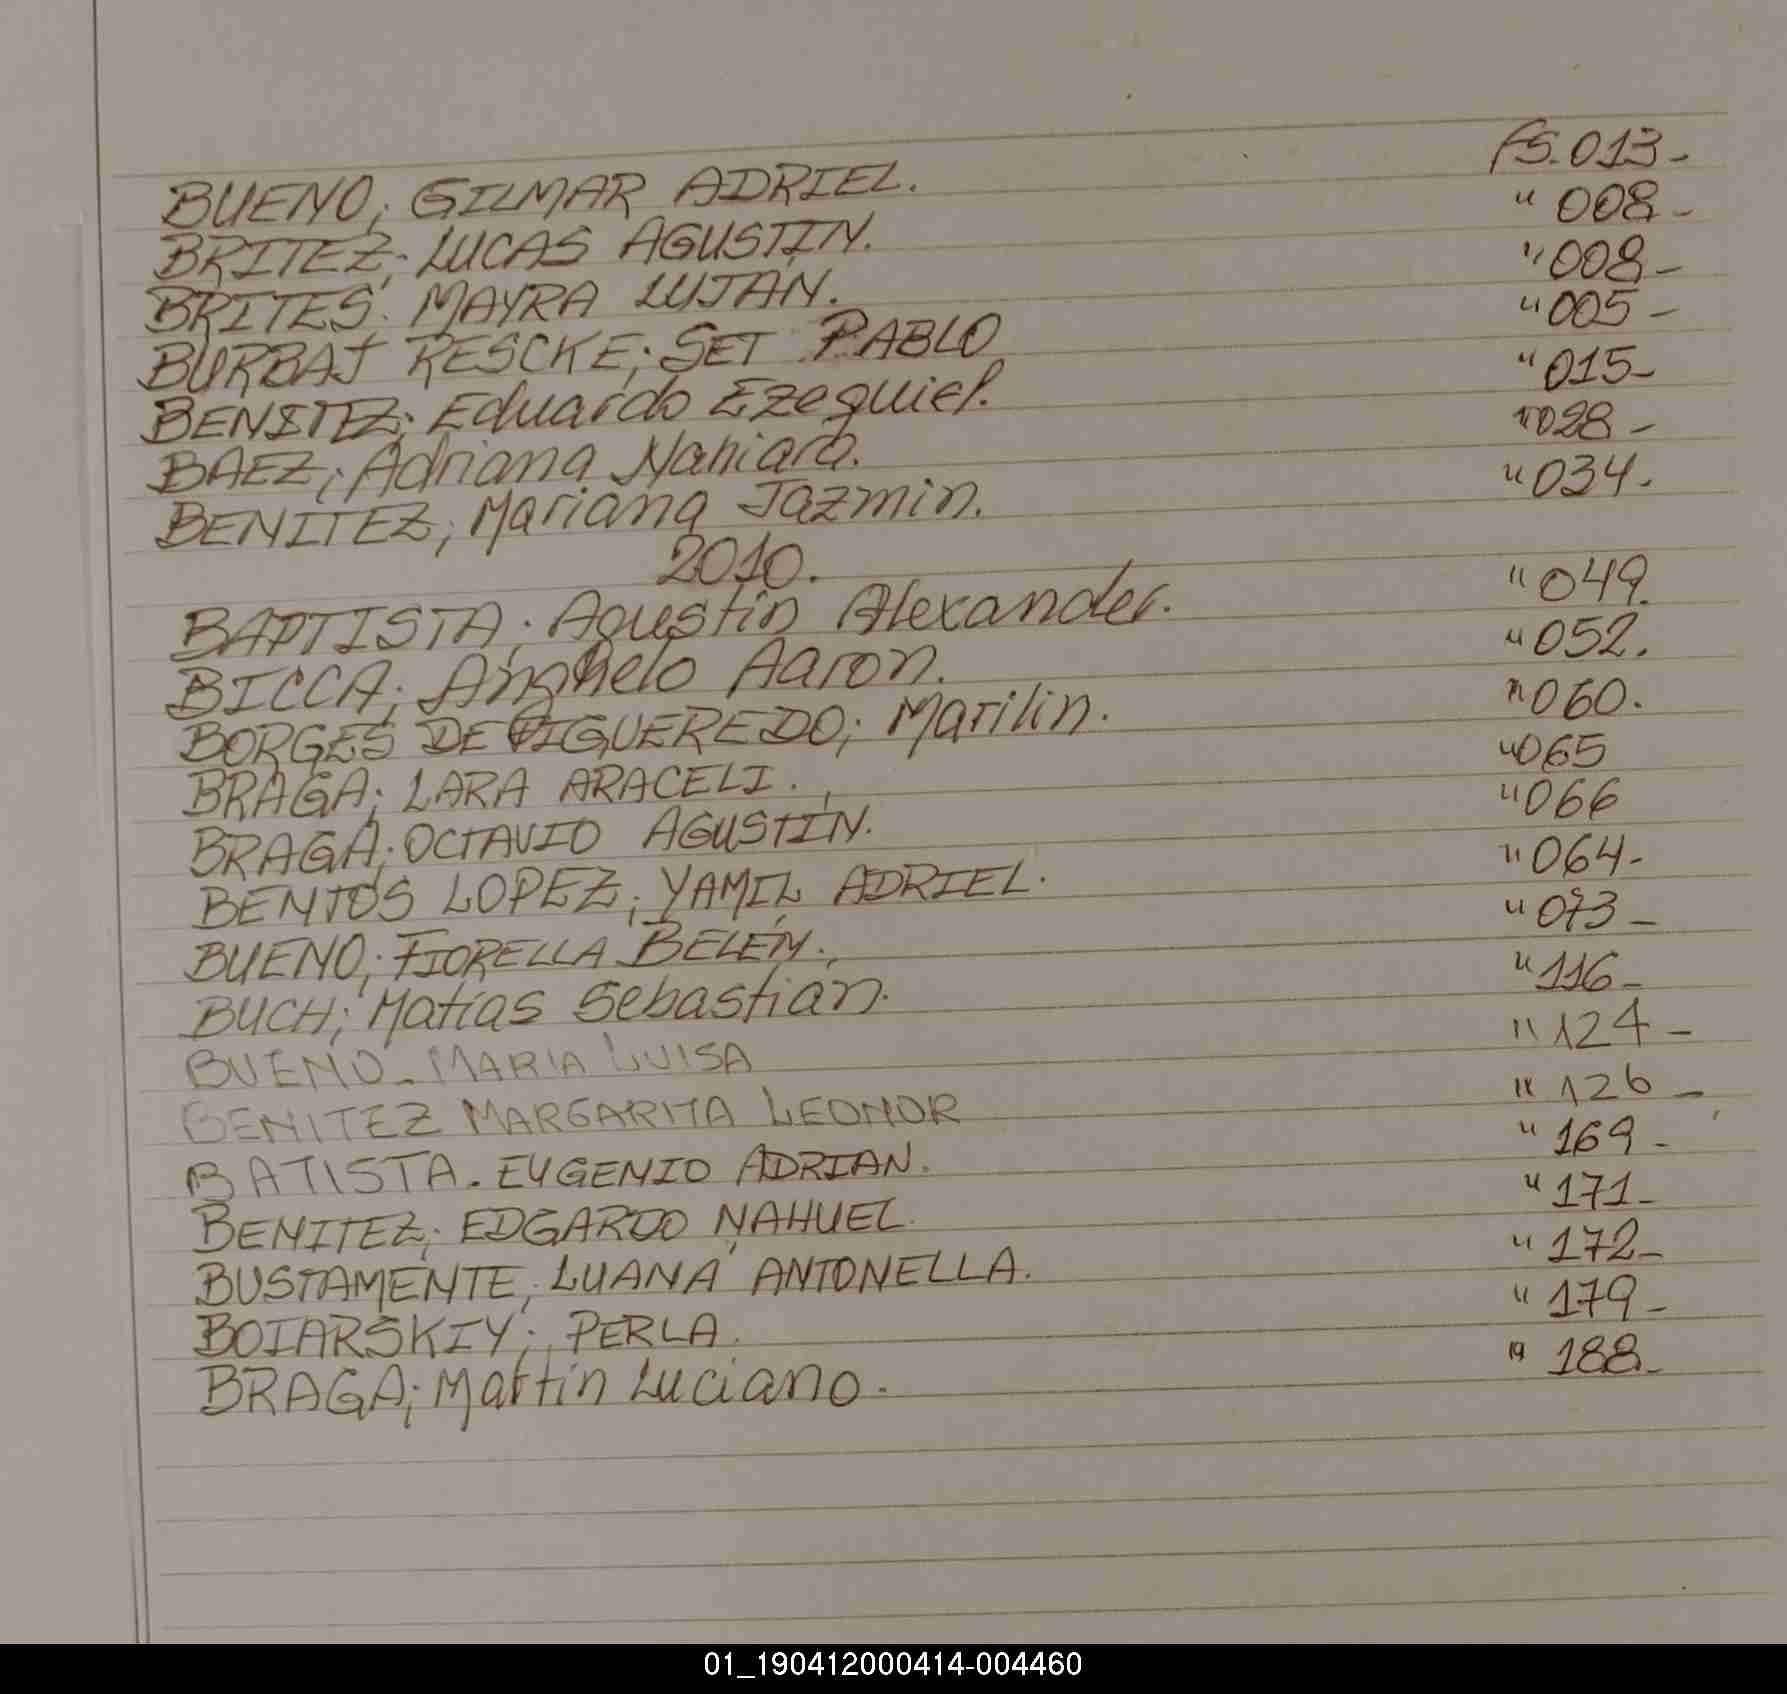 BUENO; GILMAR ADRIEL. fs. 013-
BRITEZ; LUCAS AGUSTÍN. " 008-
BRITES; MAYRA LUJÁN. " 008-
BURBAJ RESCKE; SET PABLO " 005-
BENITEZ; Eduardo Ezequiel. " 015-
BAEZ; Adriana Nahiara. " 028-
BENITEZ; Mariana Jazmin. " 034.
2010.
BAPTISTA; Agustín Alexander. " 049.
BICCA; Anghelo Aaron. " 052.
BORGES DE FIGUEREDO; Marilin. " 060.
BRAGA; LARA ARACELI. " 065
BRAGA; OCTAVIO AGUSTÍN. " 066
BENTOS LOPEZ; YAMIL ADRIEL. " 064-
BUENO; FIORELLA BELÉN. " 073-
BUCH; Matías Sebastián. " 116-
BUENO - MARIA LUISA " 124-
BENITEZ MARGARITA LEONOR " 126-
BATISTA. EUGENIO ADRIAN. " 169-
BENITEZ; EDGARDO NAHUEL. " 171-
BUSTAMENTE; LUANA ANTONELLA. " 172-
BOIARSKIY; PERLA. " 179-
BRAGA; Martín Luciano. " 188-
01_190412000414-004460